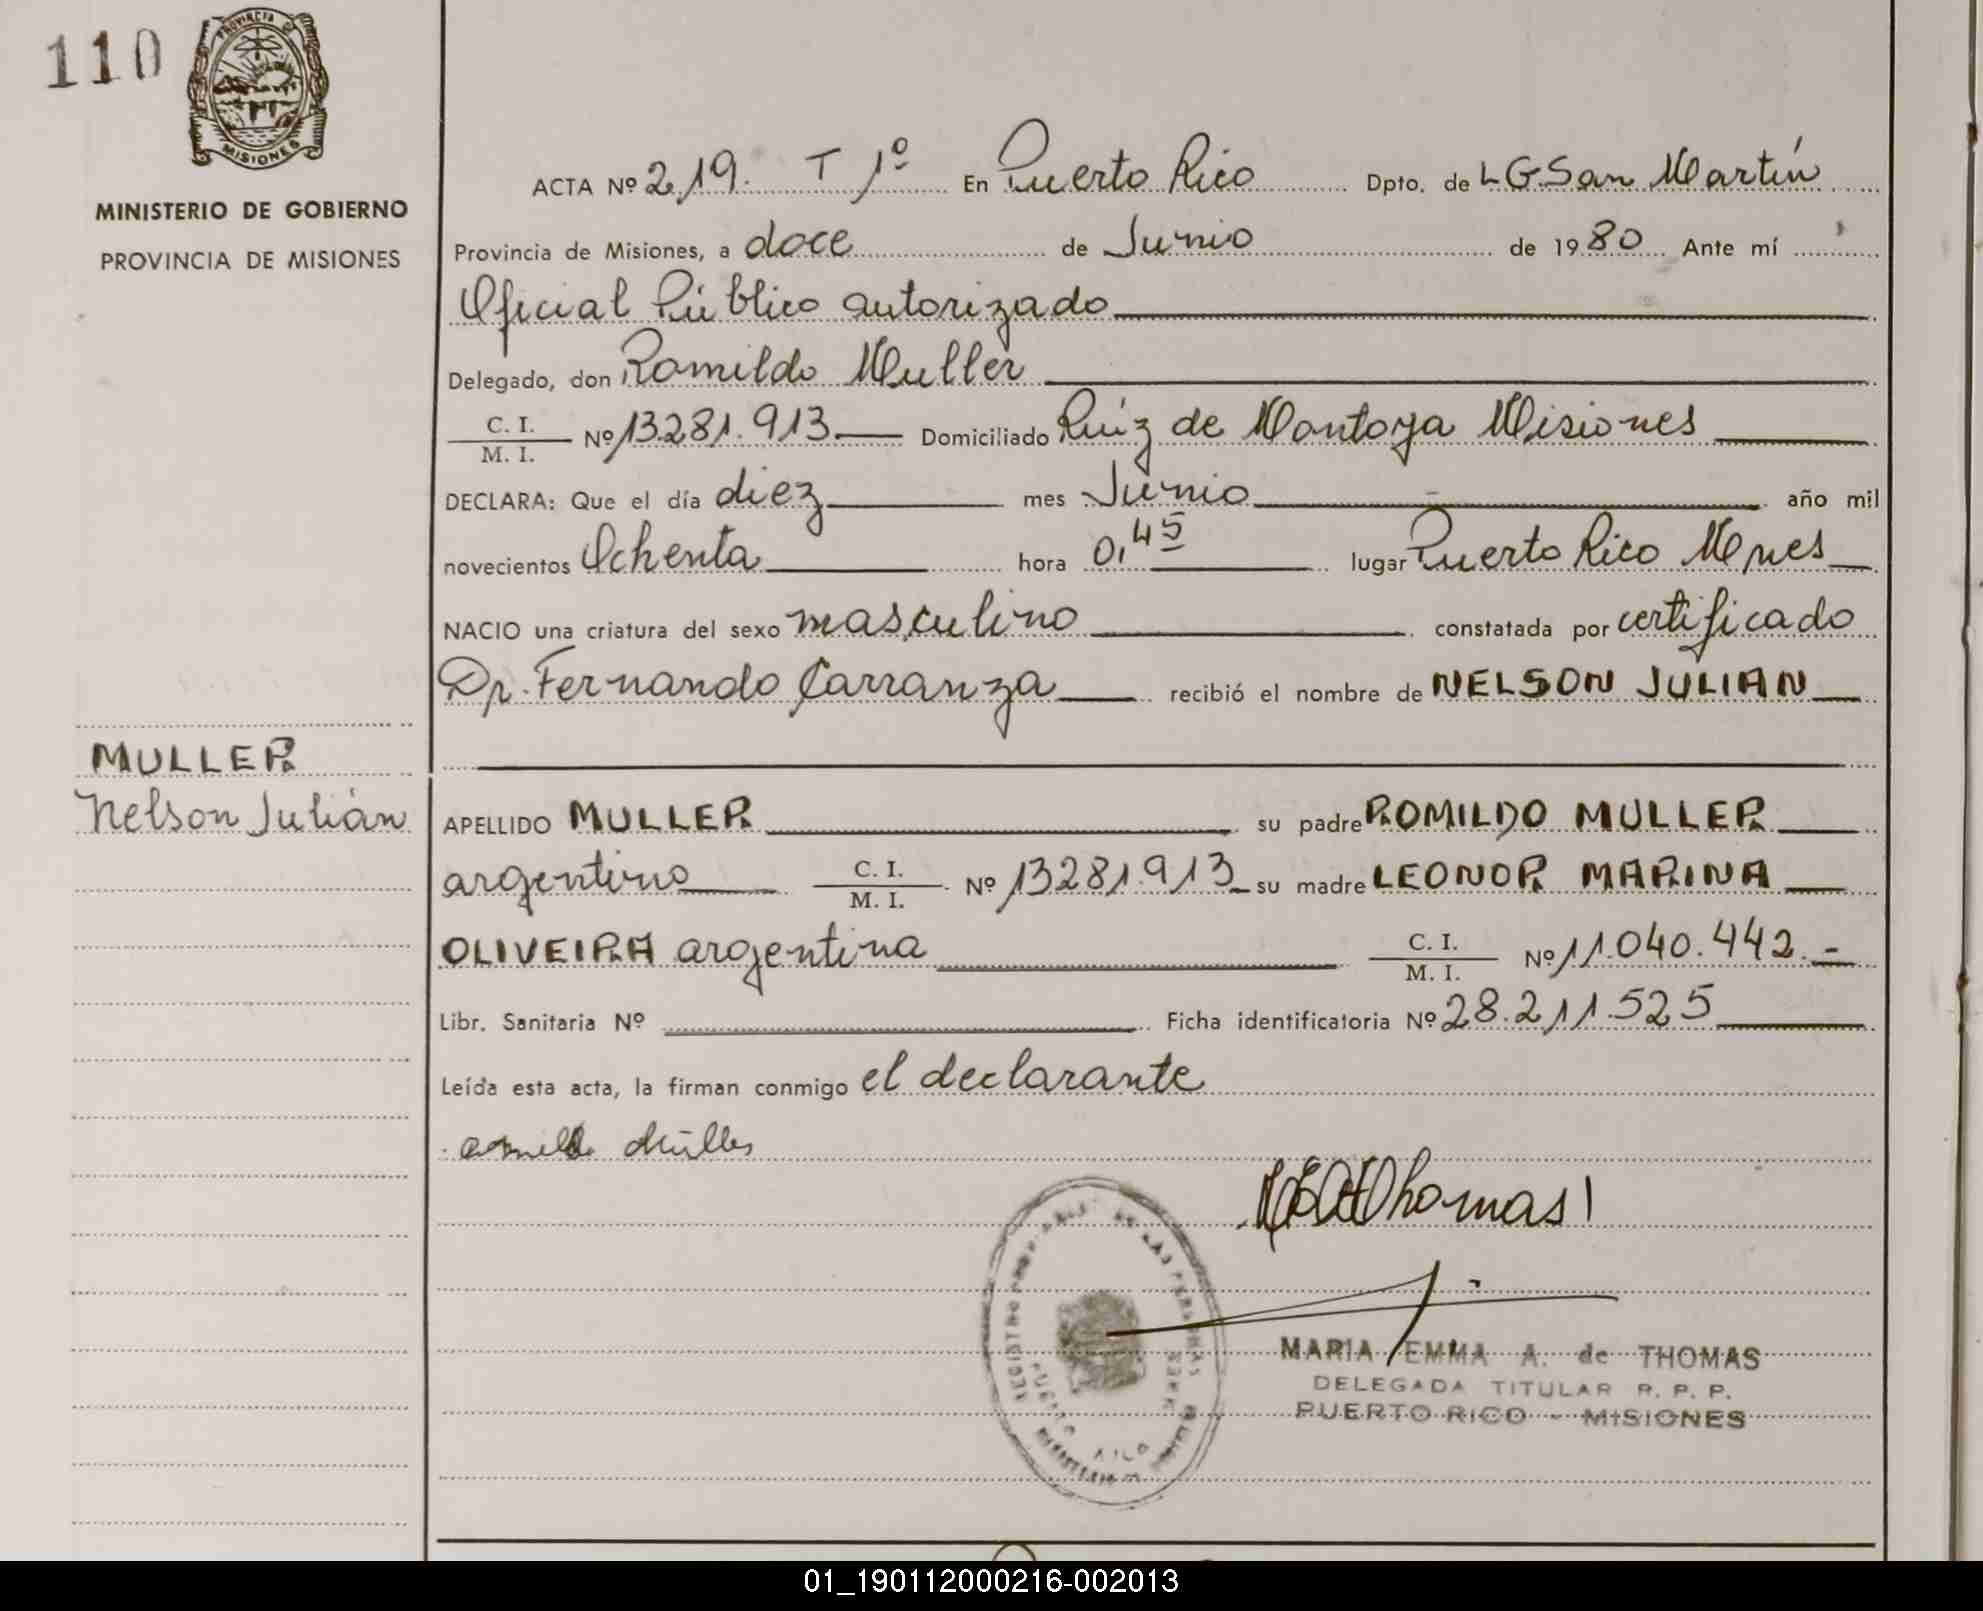 110
PROVINCIA DE
MISIONES
MINISTERIO DE GOBIERNO
PROVINCIA DE MISIONES
ACTA Nº 219. T 1º En Puerto Rico Dpto. de L G. San Martín
Provincia de Misiones, a doce de Junio de 1980 Ante mí
Oficial Público autorizado
Delegado, don Romildo Muller
C. I.
M. I.
Nº 13.281.913 Domiciliado Ruíz de Montoya Misiones
DECLARA: Que el día diez mes Junio año mil
novecientos Ochenta hora 0,45 lugar Puerto Rico Mnes
NACIO una criatura del sexo masculino constatada por certificado
Dr. Fernando Carranza recibió el nombre de NELSON JULIAN
MULLER
Nelson Julián
APELLIDO MULLER su padre ROMILDO MULLER
argentino C. I. M. I. Nº 13281.913 su madre LEONOR MARINA
OLIVEIRA argentina C. I. M. I. Nº 11.040.442.-
Libr. Sanitaria Nº Ficha identificatoria Nº 28.211.525
Leída esta acta, la firman conmigo el declarante
Müller
Thomas
REGISTRO DE LAS PERSONAS
PUERTO RICO
MARIA EMMA A. de THOMAS
DELEGADA TITULAR R. P. P.
PUERTO RICO - MISIONES
01_190112000216-002013